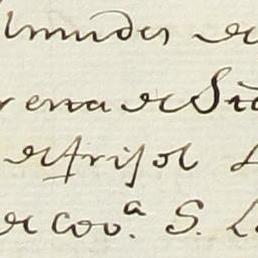 Almudes de
rena de Sic
de frisol
de Cov.ª S. L